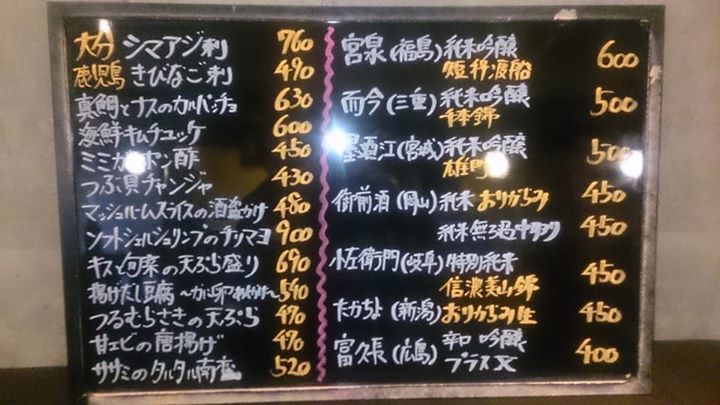 大分 シマアジ刺 760
鹿児島 きびなご刺 490
真鯛とナスのカルパッチョ 630
海鮮キムチユッケ 600
ミミガーポン酢 450
つぶ貝チャンジャ 430
マッシュルームスライスの酒盗がけ 480
ソフトシェルシュリンプのチリマヨ 900
キスと旬菜の天ぷら盛り 690
揚げだし豆腐 590
つるむらさきの天ぷら 490
甘エビの唐揚げ 470
ササミのタルタル南蛮 520
宮泉(福島) 純米吟醸 600
短稈渡船
而今(三重) 純米吟醸 500
千本錦
墨廼江(宮城) 純米吟醸 500
雄町
御前酒(岡山) 純米 おりがらみ 450
純米 無ろ過 中汲み 450
小左衛門(岐阜) 特別純米
信濃美山錦 450
たかちよ(新潟) おりがらみ生 450
富久長(広島) 辛口 吟醸 400
プラスX